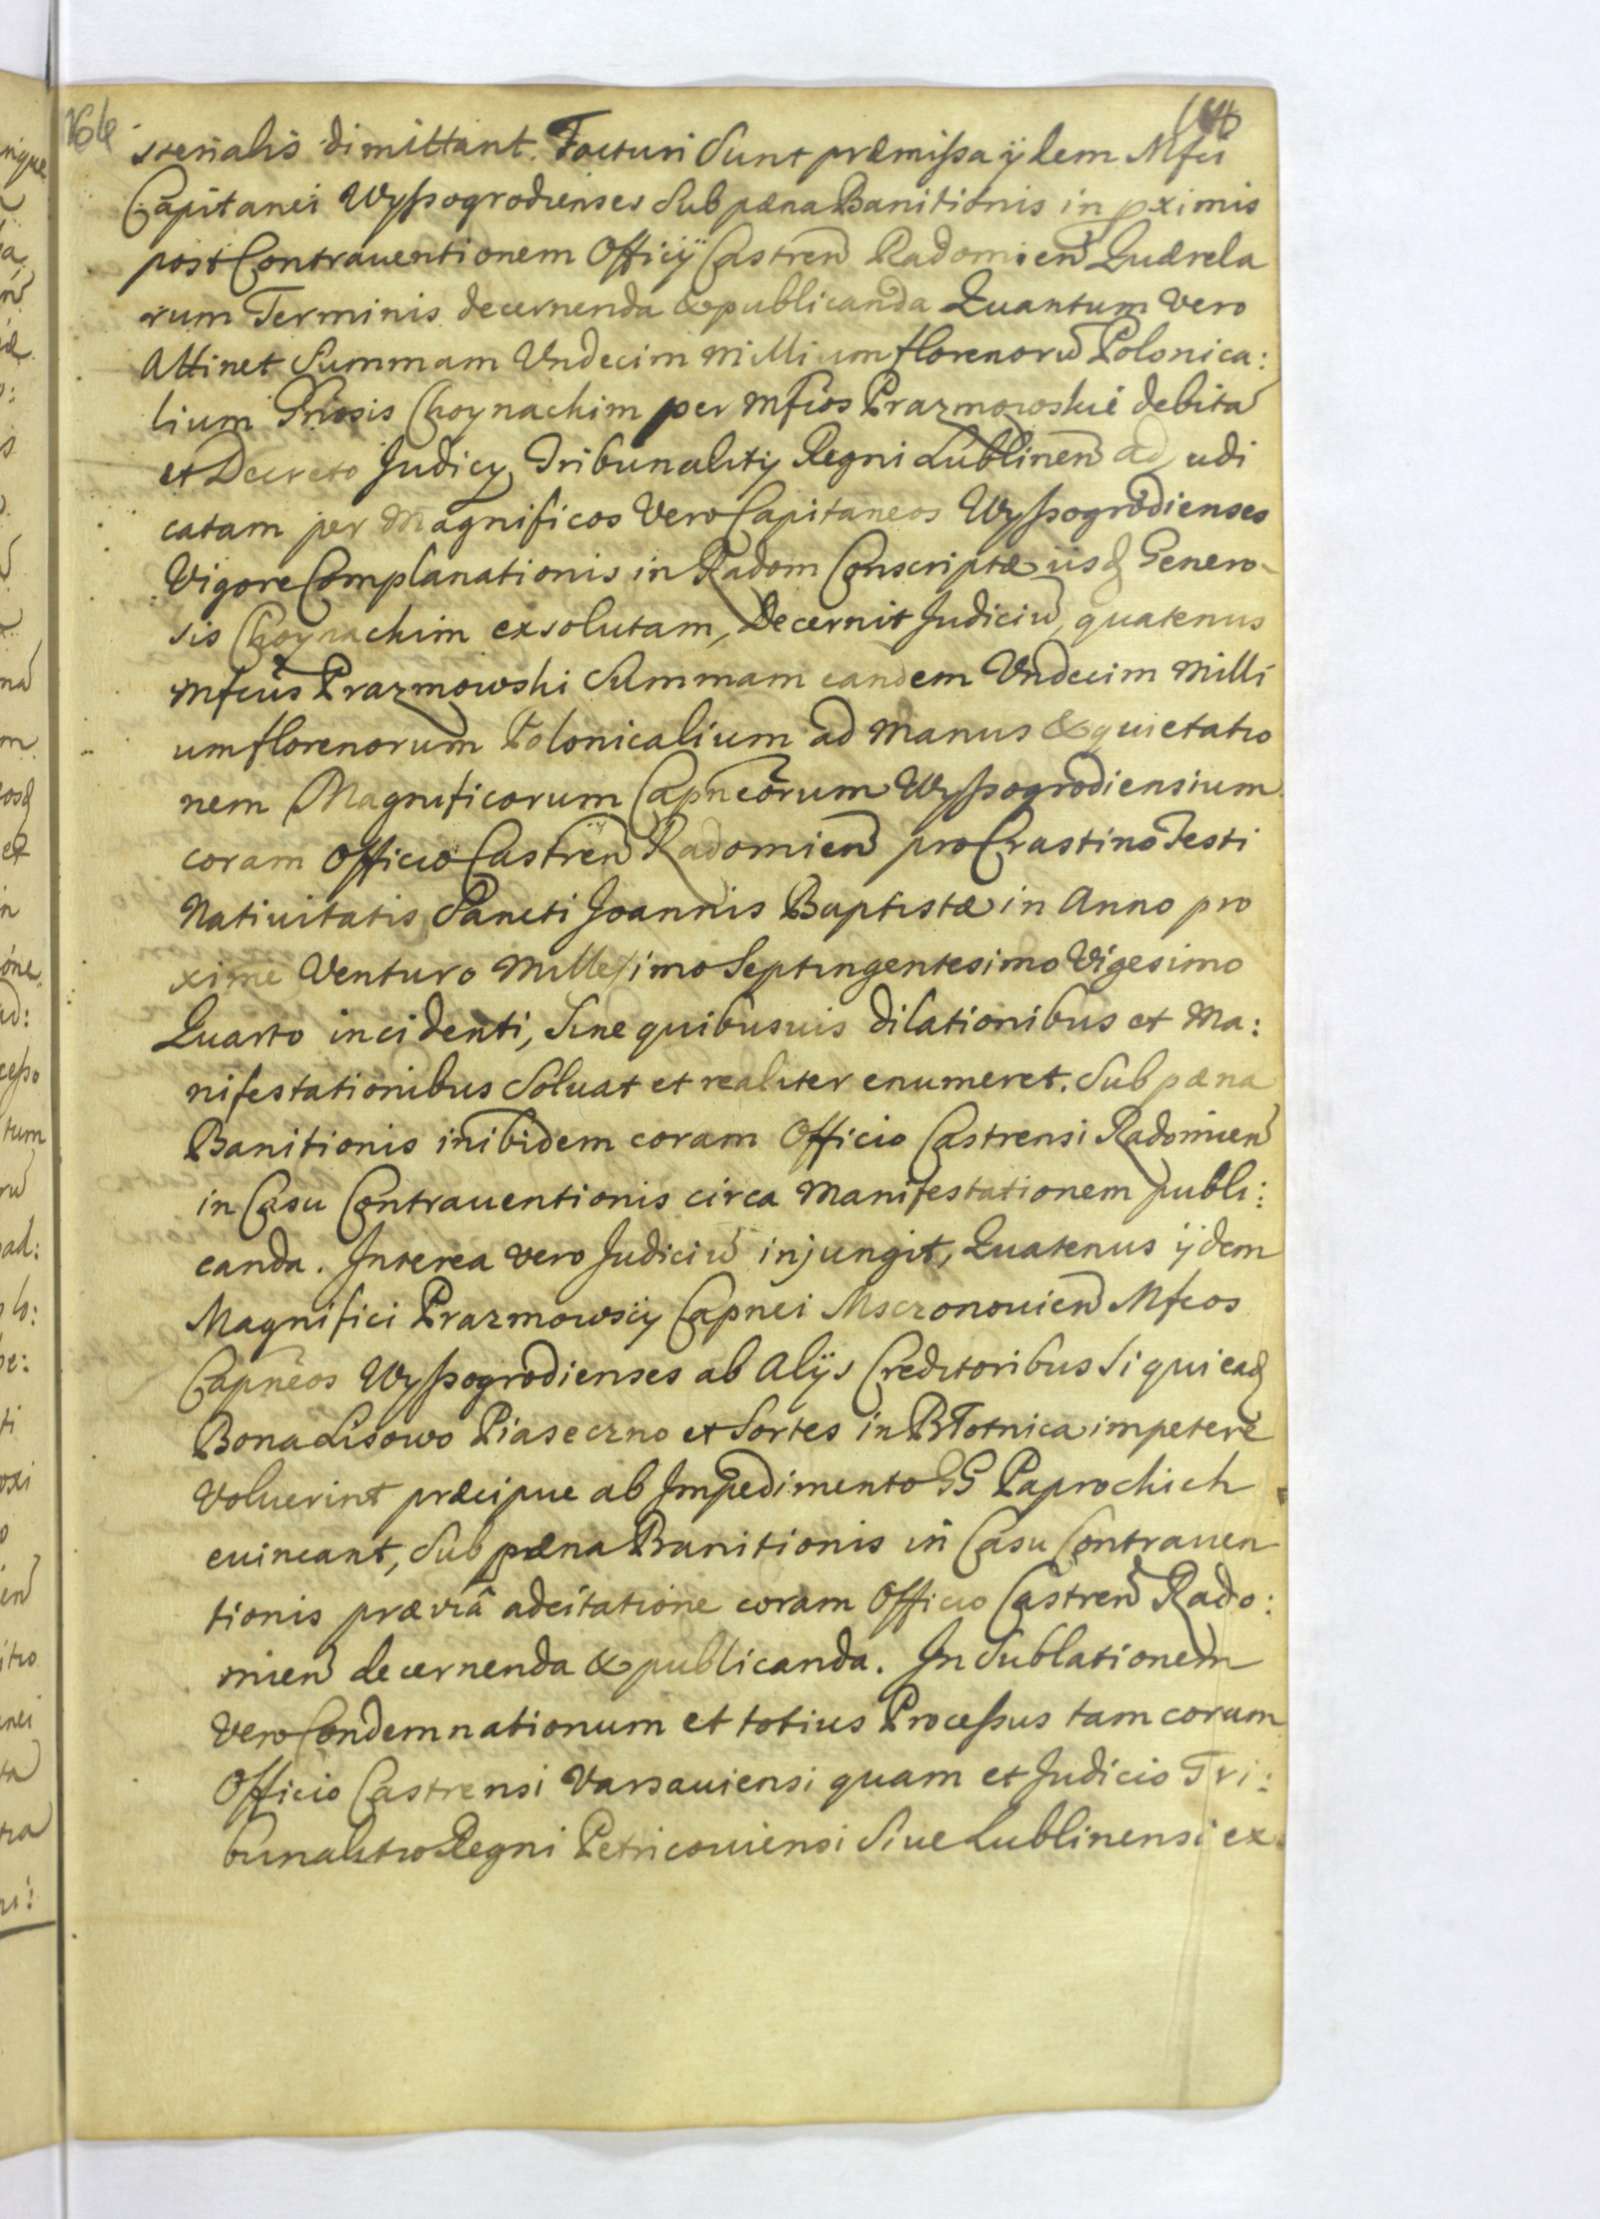 sterialis dimittant. Facturi Sunt præmissa ÿdem Mfci
Capitanei Wyssogrodienses Sub pæna Banitionis in pximis
post Contrauentionem Officÿ Castren Radomien Quærela
rum Terminis decernenda & publicanda Quantum Vero
Attinet Summam Vndecim Millium florenorū Polonica:
lium Gnosis Choynackim per Mfcos Prazmowskie debita
et Decreto Judicÿ Tribunalitÿ Regni Lublinen ad udi
catam per Magnificos Vero Capitaneos Wyssogrodienses
Vigore Complanationis in Radom Conscriptæ iisq Genero-
sis Choynackim exsolutam, Decernit Judiciū, quatenus
Mfcus Prazmowski Summam eandem Vndecim Milli
um florenorum Polonicalium ad Manus & quietatio
nem Magnificorum Capneorum Wyssogrodiensium
coram Officio Castren Radomien pro Crastino Festi
Natiuitatis Sancti Joannis Baptistæ in Anno pro
xime Venturo Millesimo Septingentesimo Vigesimo
Quarto incidenti, Sine quibusuis dilationibus et Ma:
nifestationibus Soluat et realiter enumeret. Sub pæna
Banitionis inibidem coram Officio Castrensi Radomien
in Casu Contrauentionis circa Manifestationem publi:
canda. Interea vero Judiciū injungit, Quatenus ÿdem
Magnifici Prazmowscÿ Capnei Msczonouien Mfcos
Capneos Wyssogrodienses ab Alÿs Creditoribus Si qui eaq
Bona Lisowo Piaseczno et Sortes in Błotnica impetere
Voluerint præcipue ab Impedimento GG Paprockich
euincant, Sub pæna Banitionis in Casu Contrauen
tionis præviâ adcitatione coram Officio Castren Rado:
mien decernenda & publicanda. In Sublationem
Vero Condemnationum et totius Processus tam coram
Officio Castrensi Varsauiensi quam et Judicio Tri:
bunalitio Regni Petricouiensi Siue Lublinensi ex